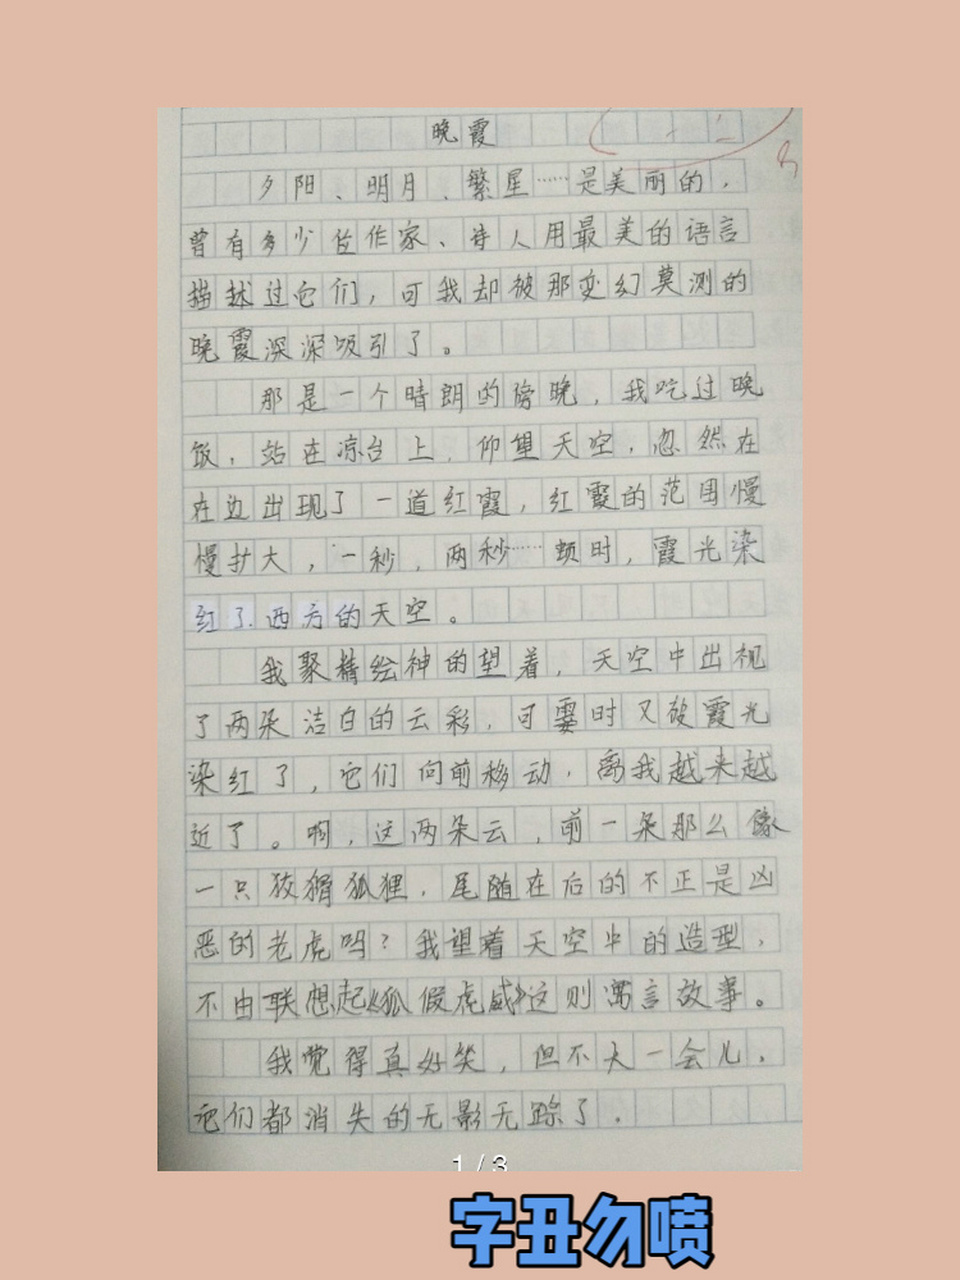 晚霞
夕阳、明月、繁星……是美丽的，
曾有多少位作家、诗人用最美的语言
描述过它们，可我却被那变幻莫测的
晚霞深深吸引了。
那是一个晴朗的傍晚，我吃过晚
饭，站在凉台上，仰望天空，忽然在
在边出现了一道红霞，红霞的范围慢
慢扩大，一秒，两秒……顿时，霞光染
红了西方的天空。
我聚精绘神的望着，天空中出现
了两朵洁白的云彩，可霎时又被霞光
染红了，它们向前移动，离我越来越
近了。啊，这两朵云，前一条那么像
一只狡猾狐狸，尾随在后的不正是凶
恶的老虎吗？我望着天空中的造型，
不由联想起《狐假虎威》这则寓言故事。
我觉得真好笑，但不大一会儿，
它们都消失的无影无踪了．
1/3
字丑勿喷